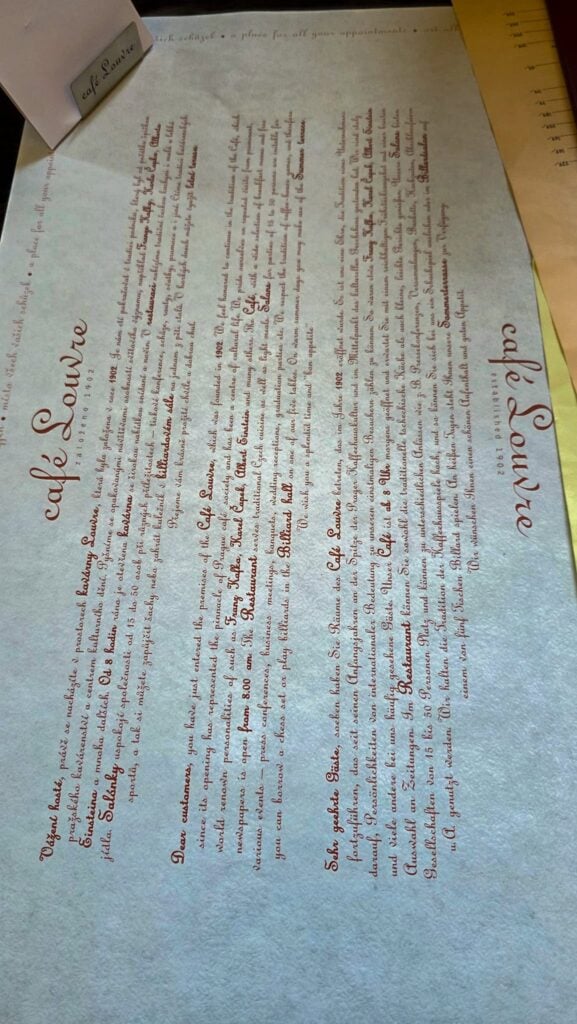 café Louvre
místo všech vašich schůzek • a place for all your appointments
café Louvre
založeno 1902
Vážení hosté, právě se nacházíte v prostorách kavárny Louvre, která byla založena v roce 1902. Je nám ctí pokračovat v tradici podniku, který byl od počátku špičkou
pražského kavárenství a centrem kulturního dění. Pyšníme se opakovanými návštěvami osobností světového významu, například Franze Kafky, Karla Čapka, Alberta
Einsteina a mnoha dalších. Od 8 hodin ráno je otevřena kavárna se širokou nabídkou snídaní a novin. V restauraci nabízíme tradiční českou kuchyni a malá a lehká
jídla. Salónky uspokojí společnosti od 15 do 50 osob při různých příležitostech – tiskové konference, schůze, rauty, svatby, promoce a i jiné. Ctíme tradici kavárenských
sportů, a tak si můžete zapůjčit šachy nebo zahrát kulečník v billiardovém sále na jednom z pěti stolů. V horkých dnech můžete využít letní terasu.
Přejeme vám krásné prožití chvíle a dobrou chuť
Dear customers, you have just entered the premises of the Café Louvre, which was founded in 1902. We feel honored to continue in the tradition of the Café, which
since its opening has represented the pinnacle of Prague café society and has been a centre of cultural life. We pride ourselves on repeated visits from prominent,
world renown personalities of such as Franz Kafka, Karel Čapek, Albert Einstein and many others. The Café, with a wide selection of breakfast menus and free
newspapers is open from 8.00 am. The Restaurant serves traditional Czech cuisine as well as light meals. Salons for parties of 15 to 50 persons are suitable for
various events – press conferences, business meetings, banquets, wedding receptions, graduation parties etc. We respect the tradition of coffee-house games, and therefore
you can borrow a chess set or play billiards in the Billiard hall on one of our five tables. On warm summer days you may make use of the Summer terrace.
We wish you a splendid time and "bon appetite"
Sehr geehrte Gäste, soeben haben Sie die Räume des Café Louvre betreten, das im Jahre 1902 eröffnet wurde. Es ist uns eine Ehre, die Tradition eines Unternehmens
fortzuführen, das seit seinen Anfangsjahren an der Spitze der Prager Kaffeehauskultur und im Mittelpunkt des kulturellen Geschehens gestanden hat. Wir sind stolz
darauf, Persönlichkeiten von internationaler Bedeutung zu unseren einstmaligen Besuchern zählen zu können. So waren etwa Franz Kafka, Karel Čapek, Albert Einstein
und viele andere bei uns häufig gesehene Gäste. Unser Café ist ab 8 Uhr morgens geöffnet und erwartet Sie mit einem reichhaltigen Frühstücksangebot und einer breiten
Auswahl an Zeitungen. Im Restaurant können Sie sowohl die traditionelle tschechische Küche als auch kleine, leichte Gerichte genießen. Unsere Salons bieten
Gesellschaften von 15 bis 50 Personen Platz und können zu unterschiedlichen Anlässen wie z.B. Pressekonferenzen, Versammlungen, Banketten, Hochzeiten, Abschlussfeiern
u.A. genutzt werden. Wir halten die Tradition der Kaffeehausspiele hoch, und so können Sie sich bei uns ein Schachspiel ausleihen oder im Billardsalon auf
einem von fünf Tischen Billard spielen. An heißen Tagen steht Ihnen unsere Sommerterrasse zur Verfügung.
Wir wünschen Ihnen einen schönen Aufenthalt und guten Appetit.
café Louvre
established 1902